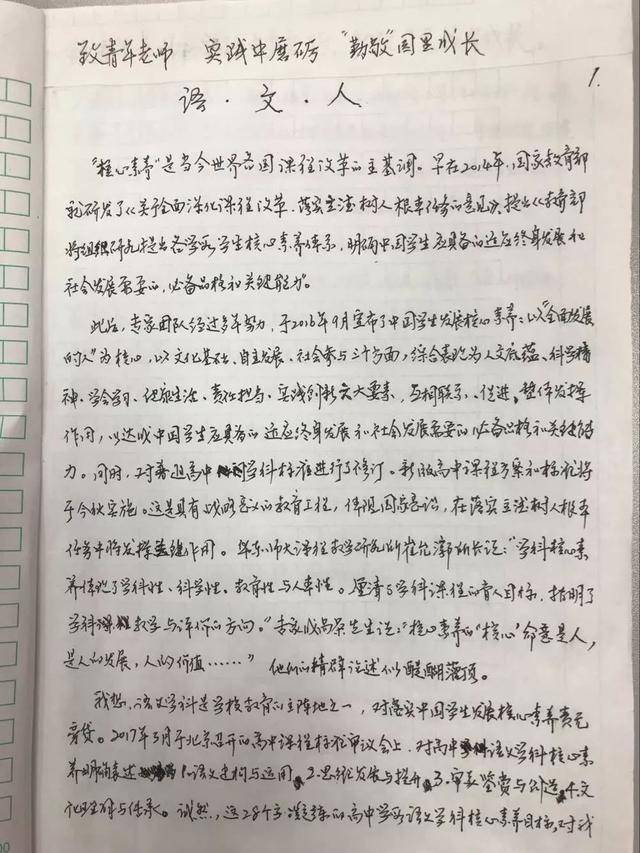 致青年老师 实践中磨砺 “勤敬”园里成长
1.
语·文·人
“核心素养”是当今世界各国课程改革的主基调。早在2014年,国家教育部
就研发了《关于全面深化课程改革、落实立德树人根本任务的意见》,提出《教育部
将组织研究提出各学段学生核心素养体系,明确中国学生应具备的适应终身发展和
社会发展需要的,必备品格和关键能力”。
此后,专家团队经过多年努力,于2016年9月宣布了中国学生发展核心素养:以“全面发展
的人”为核心,以文化基础、自主发展、社会参与三个方面,综合表现为人文底蕴、科学精
神、学会学习、健康生活、责任担当、实践创新六大要素,互相联系、促进、整体发挥
作用,以达成中国学生应具备的适应终身发展和社会发展需要的必备品格和关键能
力。同时,对普通高中学科标准进行了修订。新版高中课程方案和标准将
于今秋实施。这是具有战略意义的教育工程,体现国家意识,在落实立德树人根本
任务中将发挥关键作用。华东师大课程教学研究所崔允漷所长说:“学科核心素
养体现了学科性、科学性、教育性与人本性。厘清了学科课程的育人目标,指明了
学科教学与评价的方向。”专家成尚荣先生说:“核心素养的‘核心’命意是人,
是人的发展,人的价值……”他们的精辟论述似醍醐灌顶。
我想,语文学科是学校教育的主阵地之一,对落实中国学生发展核心素养责无
旁贷。2017年3月于北京召开的高中课程标准审议会上,对高中语文学科核心素
养明确表述1.语文建构与运用,2.思维发展与提升,3.审美鉴赏与创造,4.文
化理解与传承。诚然,这28个字凝练的高中学段语文学科核心素养目标,对我